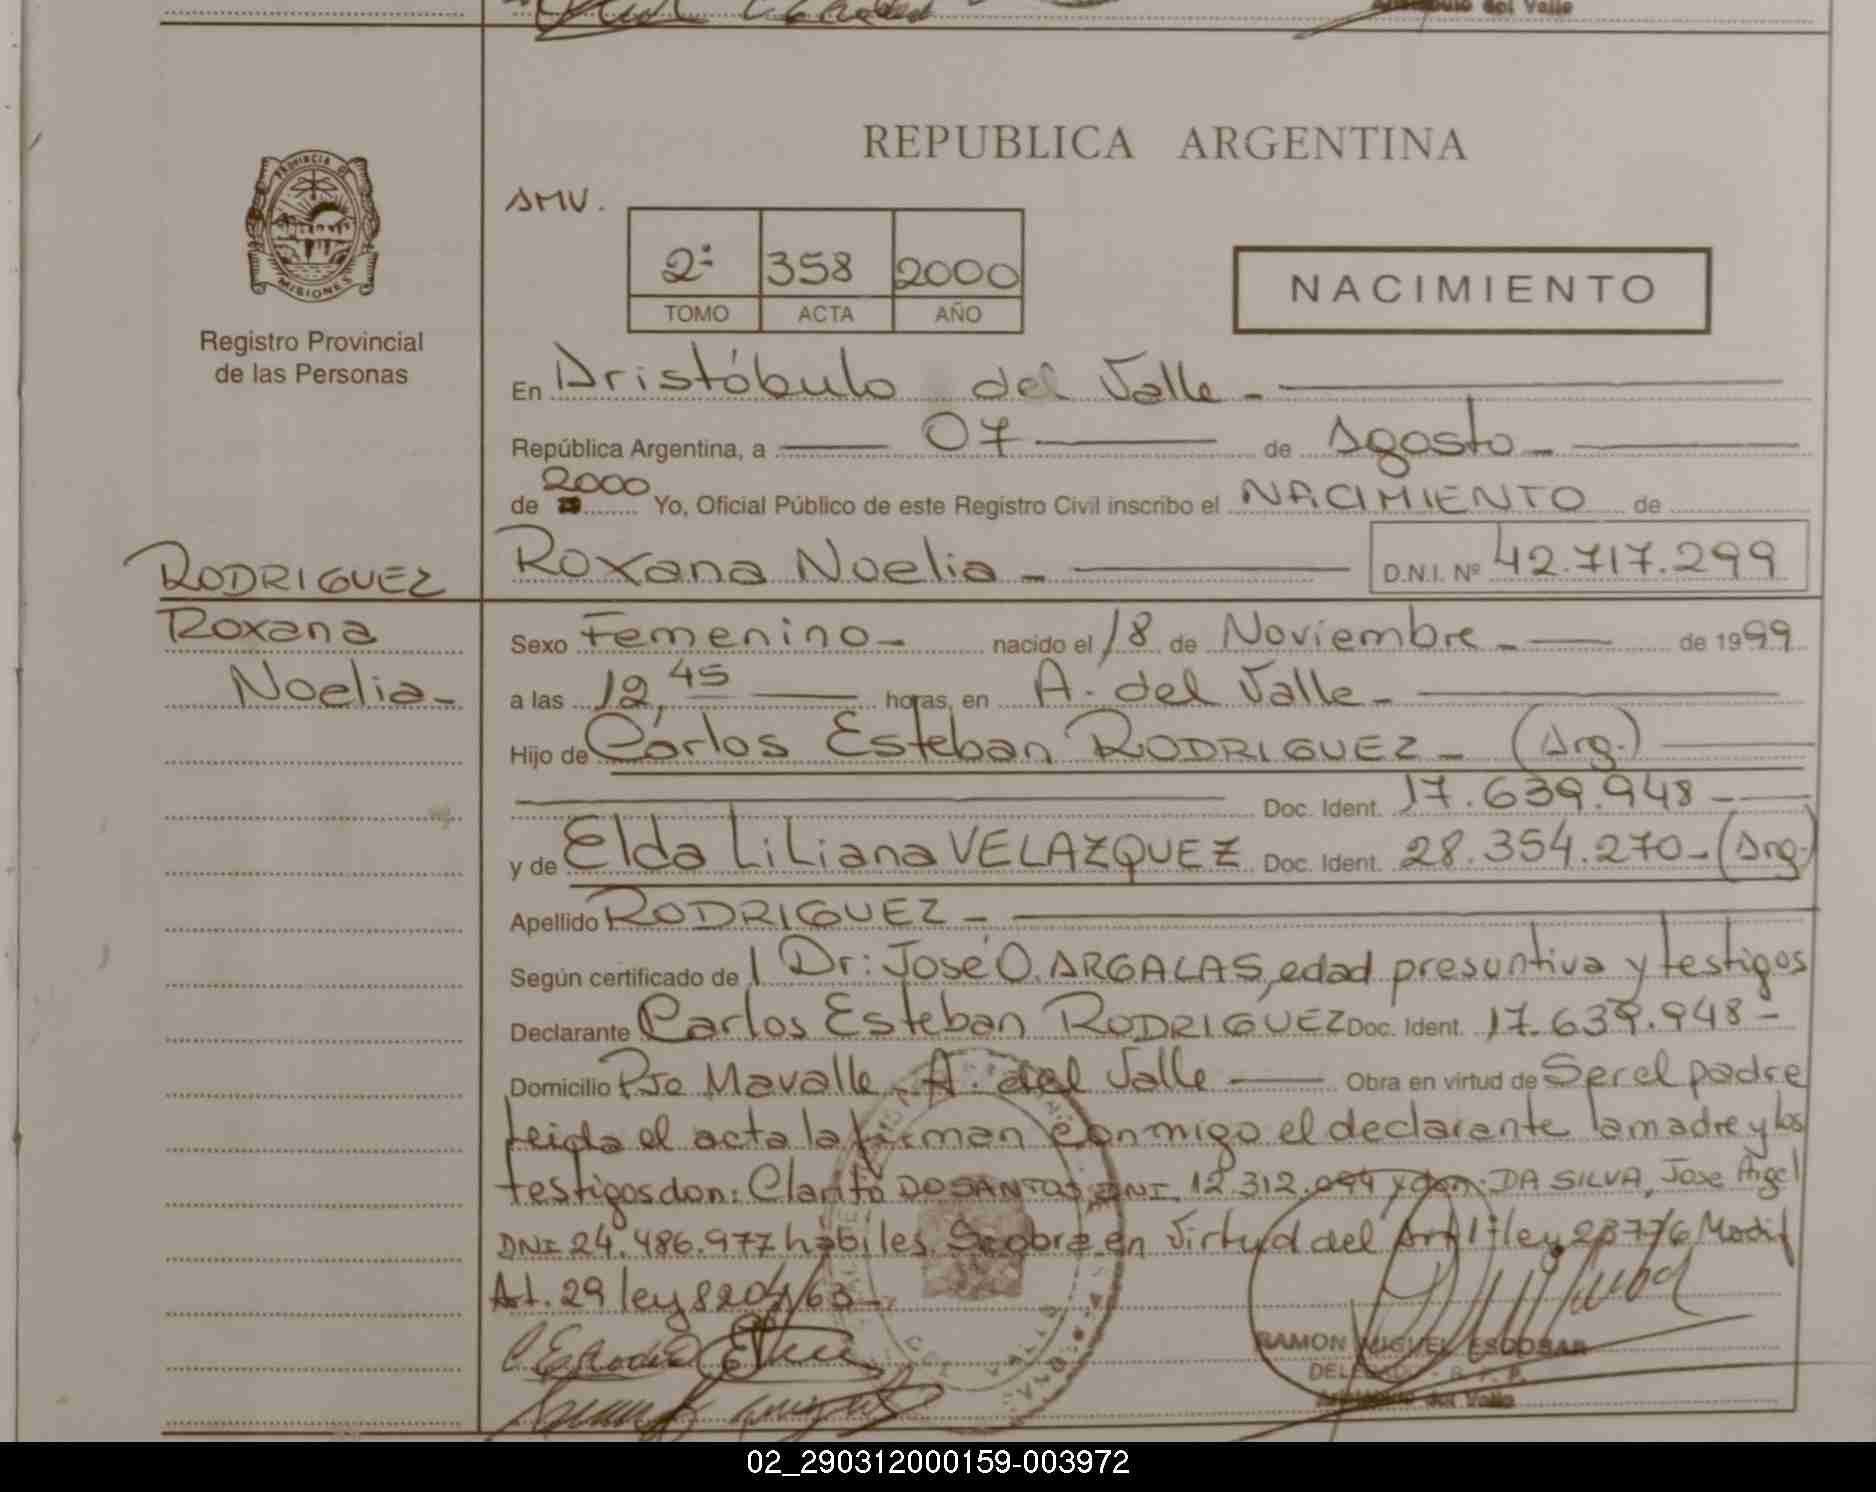 del Valle
REPUBLICA ARGENTINA
PROVINCIA DE
MISIONES
Registro Provincial
de las Personas
AMV.
2º 358 2000
TOMO ACTA AÑO
NACIMIENTO
En Aristóbulo del Valle -
República Argentina, a 07 de Agosto -
de 2000 Yo, Oficial Público de este Registro Civil inscribo el NACIMIENTO de
RODRIGUEZ
Roxana
Noelia -
Roxana Noelia - D.N.I. Nº 42.717.299
Sexo Femenino - nacido el 18 de Noviembre - de 1999
a las 12,45 horas, en A. del Valle -
Hijo de Carlos Esteban RODRIGUEZ - (Arg.)
Doc. Ident. 17.639.948 -
y de Elda Liliana VELAZQUEZ Doc. Ident. 28.354.270 - (Arg.)
Apellido RODRIGUEZ -
Según certificado de l Dr: José O. ARGALAS, edad presuntiva y testigos
Declarante Carlos Esteban RODRIGUEZ Doc. Ident. 17.639.948 -
Domicilio Pje Mavalle - A. del Valle Obra en virtud de Ser el padre
leida el acta la firman conmigo el declarante la madre y los
testigos don: Clarito DOSANTOS DNI. 12.312.094 y don: DA SILVA, Jose Angel
DNI 24.486.977 hábiles. Se obra en virtud del Art 1º ley 23776 Modif
At. 29 ley 8204/63 -
RAMON MIGUEL ESCOBAR
DELEGADO - R. P. P.
Aristóbulo del Valle
DEL VALLE
02_290312000159-003972